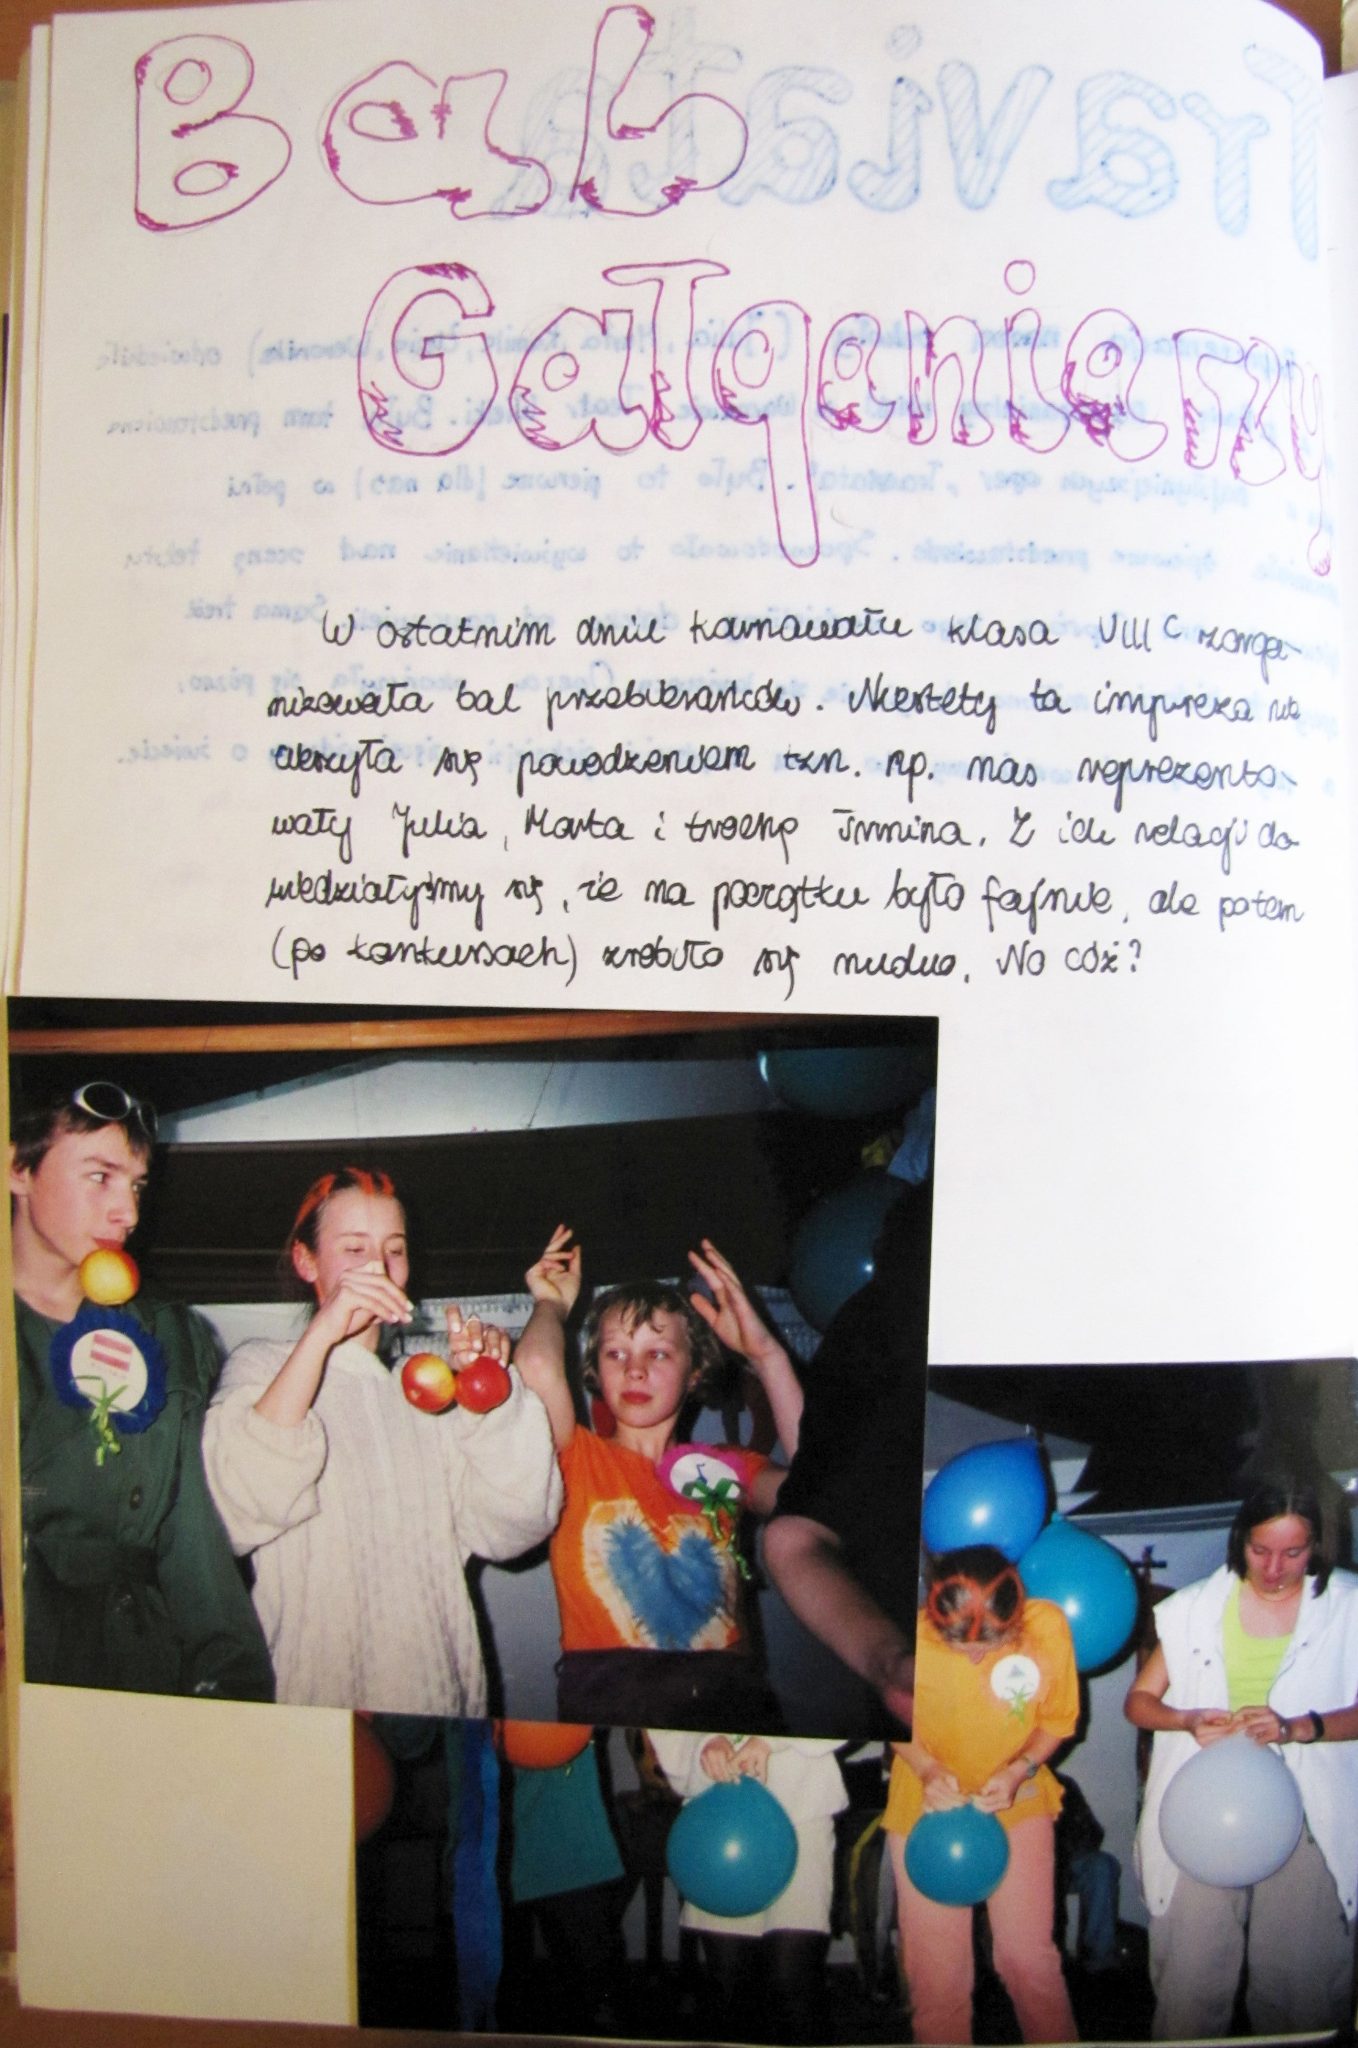 Bal
Gałganiarzy
W ostatnim dniu karnawału klasa VIIIc zorga-
nizowała bal przebierańców. Niestety ta impreza nie
cieszyła się powodzeniem tzn. np. nas reprezento-
wały Julia, Marta i trochę Irmina. Z ich relacji do-
wiedziałyśmy się, że na początku było fajnie, ale potem
(po konkursach) zrobiło się nudno. No cóż?